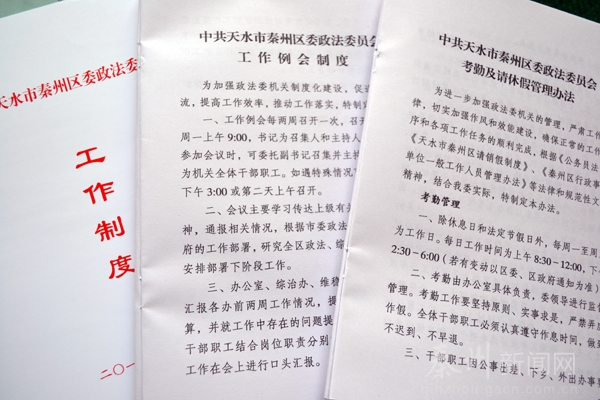 天水市秦州区委政法委
工作制度
二〇一
中共天水市秦州区委政法委员会
工作例会制度
为加强政法委机关制度化建设，促进
流，提高工作效率，推动工作落实，特制定
一、工作例会每两周召开一次，召开
周一上午9:00，书记为召集人和主持人
参加会议时，可委托副书记召集并主持
为机关全体干部职工。如遇特殊情况
下午3:00或第二天上午召开。
二、会议主要学习传达上级有关
神，通报相关情况，根据市委政法
府的工作部署，研究全区政法、综
安排部署下阶段工作。
三、办公室、综治办、维稳
汇报各办前两周工作情况，提
算，并就工作中存在的问题提
干部职工结合岗位职责分别
工作在会上进行口头汇报。
中共天水市秦州区委政法委员会
考勤及请休假管理办法
为进一步加强政法委机关的管理，严肃工作
律，切实加强作风和效能建设，确保正常的工作
序和各项工作任务的顺利完成，根据《公务员法
《天水市秦州区请销假制度》、《秦州区行政事
单位一般工作人员管理办法》等法律和规范性文
精神，结合我委实际，特制定本办法。
考勤管理
一、除休息日和法定节假日外，每周一至周
为工作日。每日工作时间为上午8:30-12:00，下午
2:30-6:00（若有变动以区委、区政府通知为准）
二、考勤由办公室具体负责，委领导进行监
管理。考勤工作要坚持原则、实事求是，严禁弄
作假。全体干部职工必须认真遵守作息时间，做
不迟到、不早退。
三、干部职工因公事出差、下乡、外出办事
新闻网